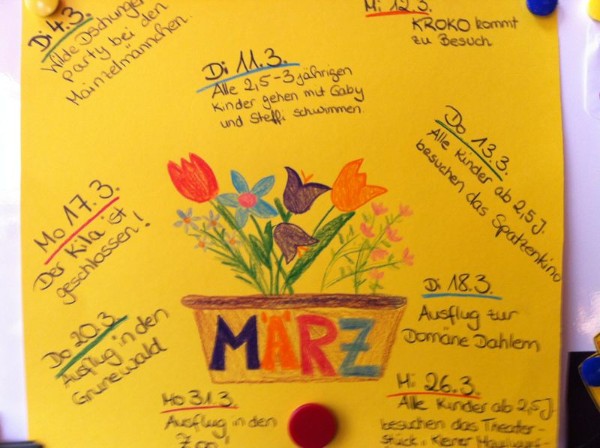 Di 4.3.
Wilde Dschungel-
party bei den
Mainzelmännchen.
Mi 12.3.
KROKO kommt
zu Besuch
Di 11.3.
Alle 2,5-3 jährigen
Kinder gehen mit Gaby
und Steffi schwimmen.
Do 13.3.
Alle Kinder ab 2,5 J.
besuchen das Spatzenkino
Mo 17.3.
Der Kila ist
geschlossen!
Di 18.3.
Ausflug zur
Domäne Dahlem
Do 20.3.
Ausflug in den
Grunewald
MÄRZ
Mi 26.3.
Alle Kinder ab 2,5 J.
besuchen das Theater-
stück: Kleiner
Mo 31.3.
Ausflug in den
Zoo!